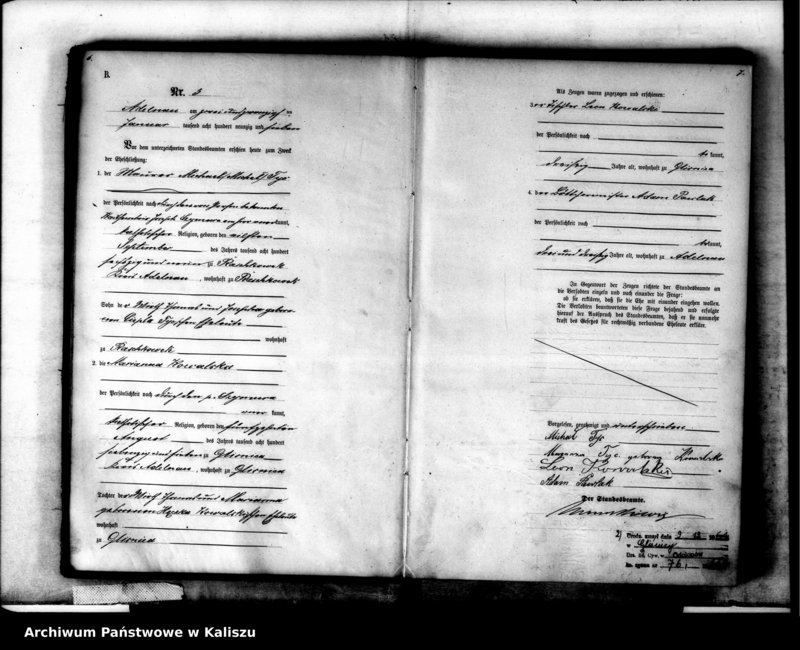 6.
B.
Nr. 3
Adelnau am zwei und zwanzigsten
Januar tausend acht hundert neunzig und sieben
Vor dem unterzeichneten Standesbeamten erschien heute zum Zweck
der Eheschließung:
1. der Maurer Michael Tyc
der Persönlichkeit nach
kannt,
katholischer Religion, geboren den elften
September des Jahres tausend acht hundert
sechszig und neun zu Raschkowek
Kreis Adelnau, wohnhaft zu Raschkowek
Sohn der Wirth Thomas und Josepha gebore-
nen Tyc'schen Eheleute
wohnhaft
zu Raschkowek
2. die Marianna Kowalska
der Persönlichkeit nach durch den p. Szymura
kannt,
katholischer Religion, geboren den fünfzehnten
August des Jahres tausend acht hundert
siebenzig und sieben zu Glisnica
Kreis Adelnau, wohnhaft zu Glisnica
Tochter der Wirth und Marianna
geborenen Kowalski'schen Eheleute
wohnhaft
zu Glisnica
7.
Als Zeugen waren zugezogen und erschienen:
3. der Leon Kowalski
der Persönlichkeit nach
be kannt,
dreissig Jahre alt, wohnhaft zu Glisnica
4. der Böttchermeister Adam Pawlak
der Persönlichkeit nach
be kannt,
drei und dreissig Jahre alt, wohnhaft zu Adelnau
In Gegenwart der Zeugen richtete der Standesbeamte an
die Verlobten einzeln und nach einander die Frage:
ob sie erklären, daß sie die Ehe mit einander eingehen wollen.
Die Verlobten beantworteten diese Frage bejahend und erfolgte
hierauf der Ausspruch des Standesbeamten, daß er sie nunmehr
kraft des Gesetzes für rechtmäßig verbundene Eheleute erkläre.
Vorgelesen, genehmigt und unterschrieben
Michael Tyc
Maryanna Tyc geborene Kowalska
Leon Kowalski
Adam Pawlak
Der Standesbeamte.
2)
w Glisnicy
76
Archiwum Państwowe w Kaliszu